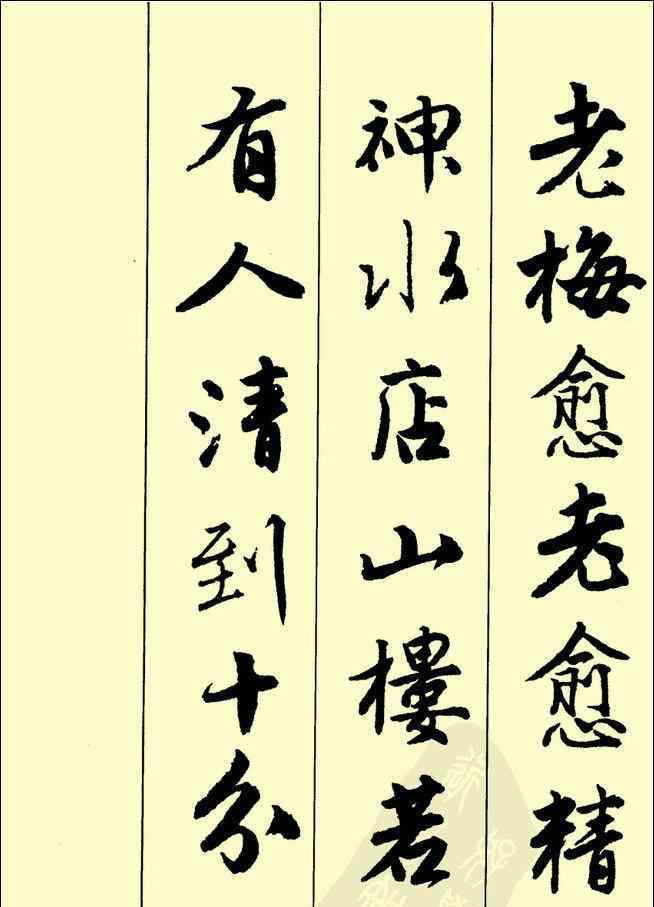 老梅愈老愈精
神水店山樓若
有人清到十分